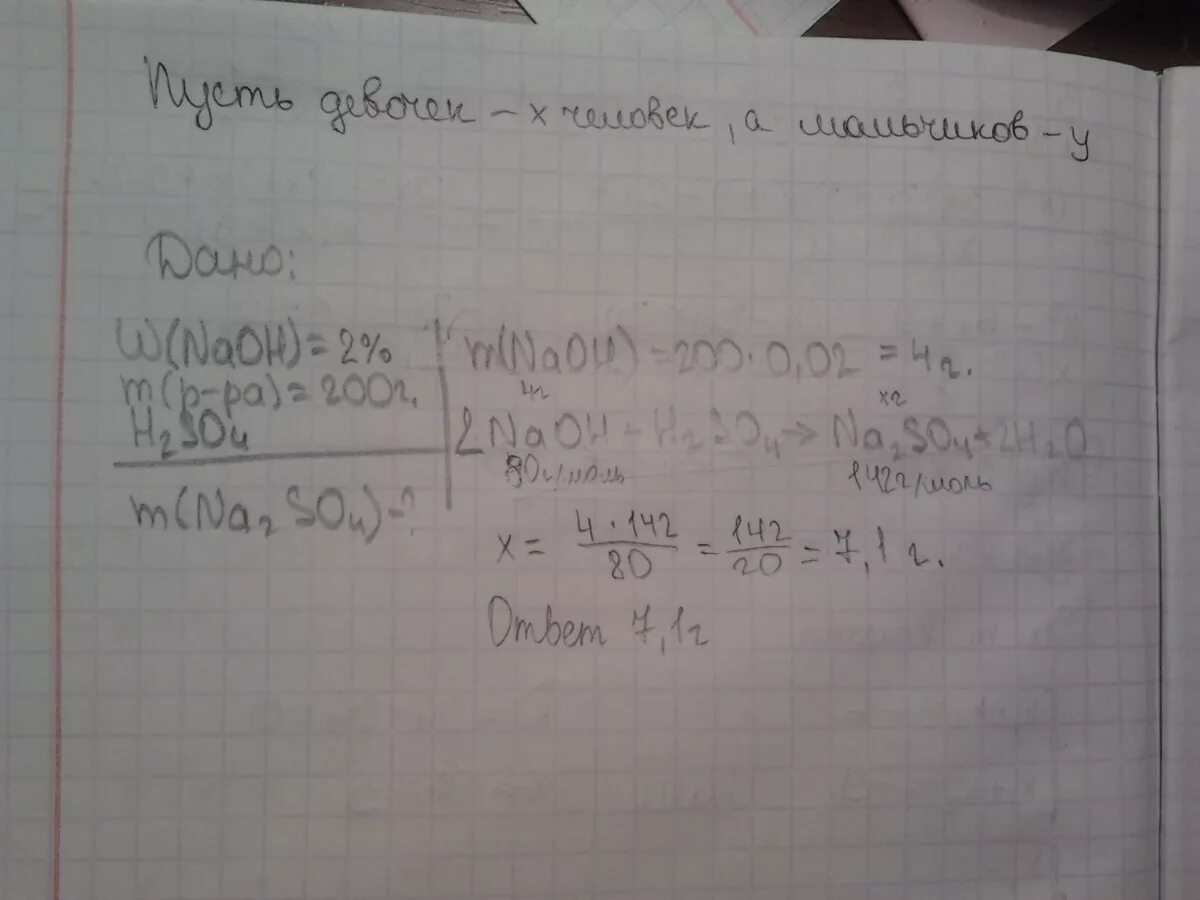 Пусть девочек - х человек, а мальчиков - у
Дано:
W(NaOH) = 2%
m(р-ра) = 200г.
H₂SO₄
m(Na₂SO₄) - ?
m(NaOH) = 200 · 0,02 = 4г.
4г хг
2NaOH + H₂SO₄ → Na₂SO₄ + 2H₂O
80г/моль 142г/моль
x = 4 · 142 / 80 = 142 / 20 = 7,1 г.
Ответ 7,1г